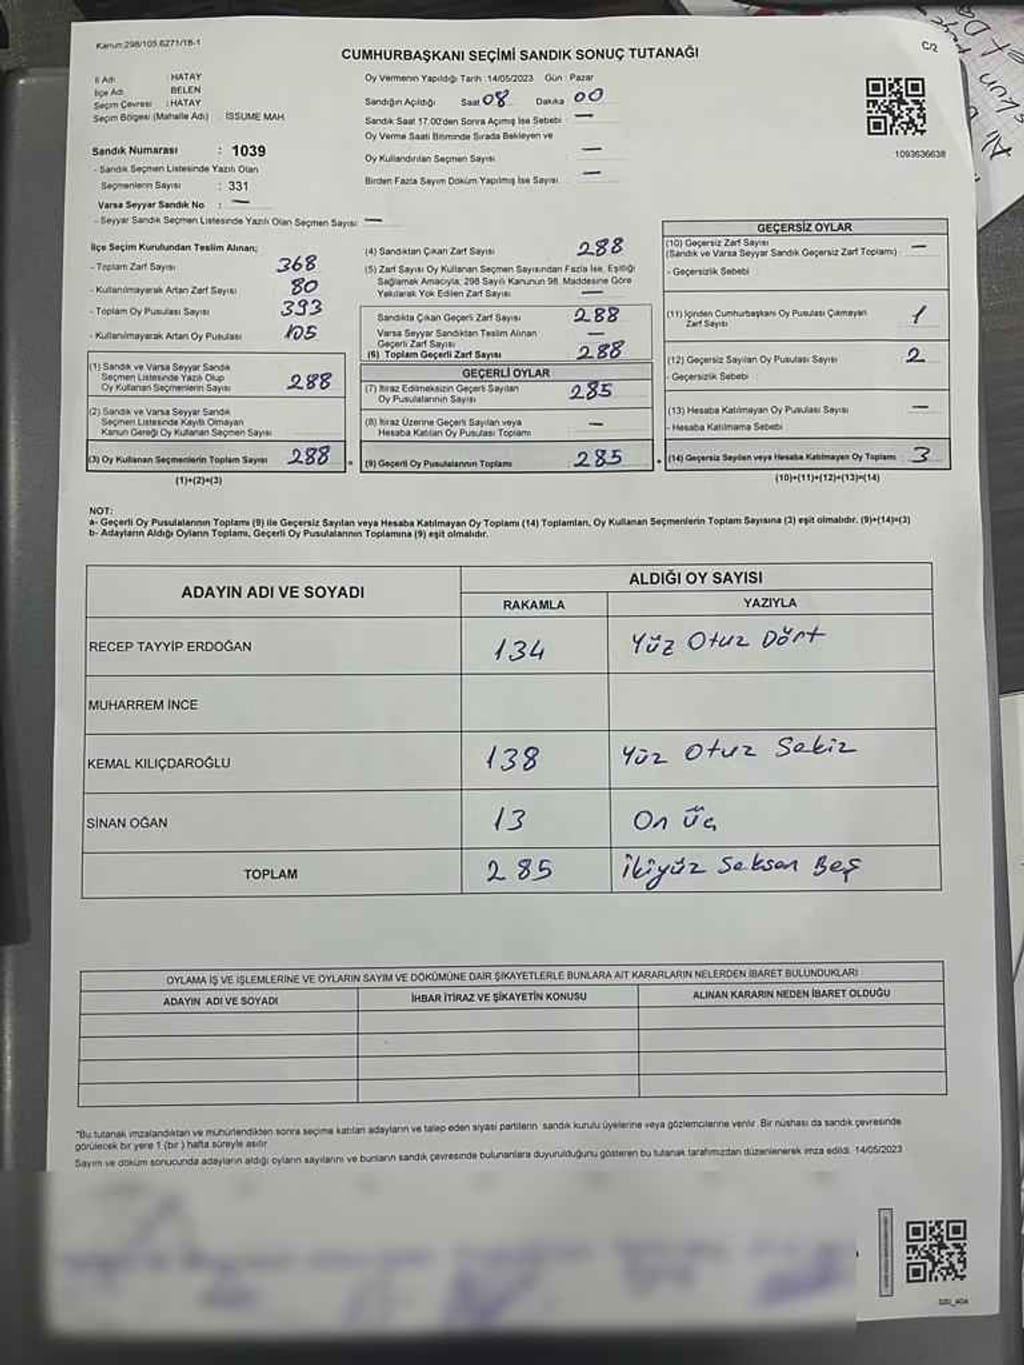 Kanun:298/105.6271/18-1
C/2
CUMHURBAŞKANI SEÇİMİ SANDIK SONUÇ TUTANAĞI
İl Adı : HATAY
İlçe Adı : BELEN
Seçim Çevresi : HATAY
Seçim Bölgesi (Mahalle Adı) : ISSUME MAH.
Sandık Numarası : 1039
- Sandık Seçmen Listesinde Yazılı Olan
Seçmenlerin Sayısı : 331
Varsa Seyyar Sandık No : —
- Seyyar Sandık Seçmen Listesinde Yazılı Olan Seçmen Sayısı : —
Oy Vermenin Yapıldığı Tarih :14/05/2023 Gün : Pazar
Sandığın Açıldığı Saat 08 Dakika 00
Sandık Saat 17:00'den Sonra Açımış İse Sebebi : —
Oy Verme Saati Bitiminde Sırada Bekleyen ve
Oy Kullandırılan Seçmen Sayısı : —
Birden Fazla Sayım Döküm Yapılmış İse Sayısı : —
1093636638
İlçe Seçim Kurulundan Teslim Alınan;
- Toplam Zarf Sayısı : 368
- Kullanılmayarak Artan Zarf Sayısı : 80
- Toplam Oy Pusulası Sayısı : 393
- Kullanılmayarak Artan Oy Pusulası : 105
(1) Sandık ve Varsa Seyyar Sandık
Seçmen Listesinde Yazılı Olup
Oy Kullanan Seçmenlerin Sayısı : 288
(2) Sandık ve Varsa Seyyar Sandık
Seçmen Listesinde Kayıtlı Olmayan
Kanun Gereği Oy Kullanan Seçmen Sayısı :
(3) Oy Kullanan Seçmenlerin Toplam Sayısı : 288
(1)+(2)=(3)
(4) Sandıktan Çıkan Zarf Sayısı : 288
(5) Zarf Sayısı Oy Kullanan Seçmen Sayısından Fazla İse, Eşitliği
Sağlamak Amacıyla; 298 Sayılı Kanunun 98. Maddesine Göre
Yakılarak Yok Edilen Zarf Sayısı : —
Sandıkta Çıkan Geçerli Zarf Sayısı : 288
Varsa Seyyar Sandıktan Teslim Alınan
Geçerli Zarf Sayısı : —
(6) Toplam Geçerli Zarf Sayısı : 288
GEÇERLİ OYLAR
(7) İtiraz Edilmeksizin Geçerli Sayılan
Oy Pusulalarının Sayısı : 285
(8) İtiraz Üzerine Geçerli Sayılan veya
Hesaba Katılan Oy Pusulası Toplamı : —
(9) Geçerli Oy Pusulalarının Toplamı : 285
GEÇERSİZ OYLAR
(10) Geçersiz Zarf Sayısı
(Sandık ve Varsa Seyyar Sandık Geçersiz Zarf Toplamı) : —
- Geçersizlik Sebebi :
(11) İçinden Cumhurbaşkanı Oy Pusulası Çıkmayan
Zarf Sayısı : 1
(12) Geçersiz Sayılan Oy Pusulası Sayısı : 2
- Geçersizlik Sebebi :
(13) Hesaba Katılmayan Oy Pusulası Sayısı : —
- Hesaba Katılmama Sebebi :
(14) Geçersiz Sayılan veya Hesaba Katılmayan Oy Toplamı : 3
(10)+(11)+(12)+(13)=(14)
NOT:
a- Geçerli Oy Pusulalarının Toplamı (9) ile Geçersiz Sayılan veya Hesaba Katılmayan Oy Toplamı (14) Toplamları, Oy Kullanan Seçmenlerin Toplam Sayısına (3) eşit olmalıdır. (9)+(14)=(3)
b- Adayların Aldığı Oyların Toplamı, Geçerli Oy Pusulalarının Toplamına (9) eşit olmalıdır.
ADAYIN ADI VE SOYADI
ALDIĞI OY SAYISI
RAKAMLA YAZIYLA
RECEP TAYYİP ERDOĞAN 134 Yüz Otuz Dört
MUHARREM İNCE
KEMAL KILIÇDAROĞLU 138 Yüz Otuz Sekiz
SİNAN OĞAN 13 On Üç
TOPLAM 285 İkiyüz Seksen Beş
OYLAMA İŞ VE İŞLEMLERİNE VE OYLARIN SAYIM VE DÖKÜMÜNE DAİR ŞİKAYETLERLE BUNLARA AİT KARARLARIN NELERDEN İBARET BULUNDUKLARI
ADAYIN ADI VE SOYADI İHBAR İTİRAZ VE ŞİKAYETİN KONUSU ALINAN KARARIN NEDEN İBARET OLDUĞU
*Bu tutanak imzalandıktan ve mühürlendikten sonra seçime katılan adayların ve talep eden siyasi partilerin sandık kurulu üyelerine veya gözlemcilerine verilir. Bir nüshası da sandık çevresinde
görülecek bir yere 1 (bir ) hafta süreyle asılır
Sayım ve döküm sonucunda adayların aldığı oyların sayılarını ve bunların sandık çevresinde bulunanlara duyurulduğunu gösteren bu tutanak tarafımızdan düzenlenerek imza edildi. 14/05/2023